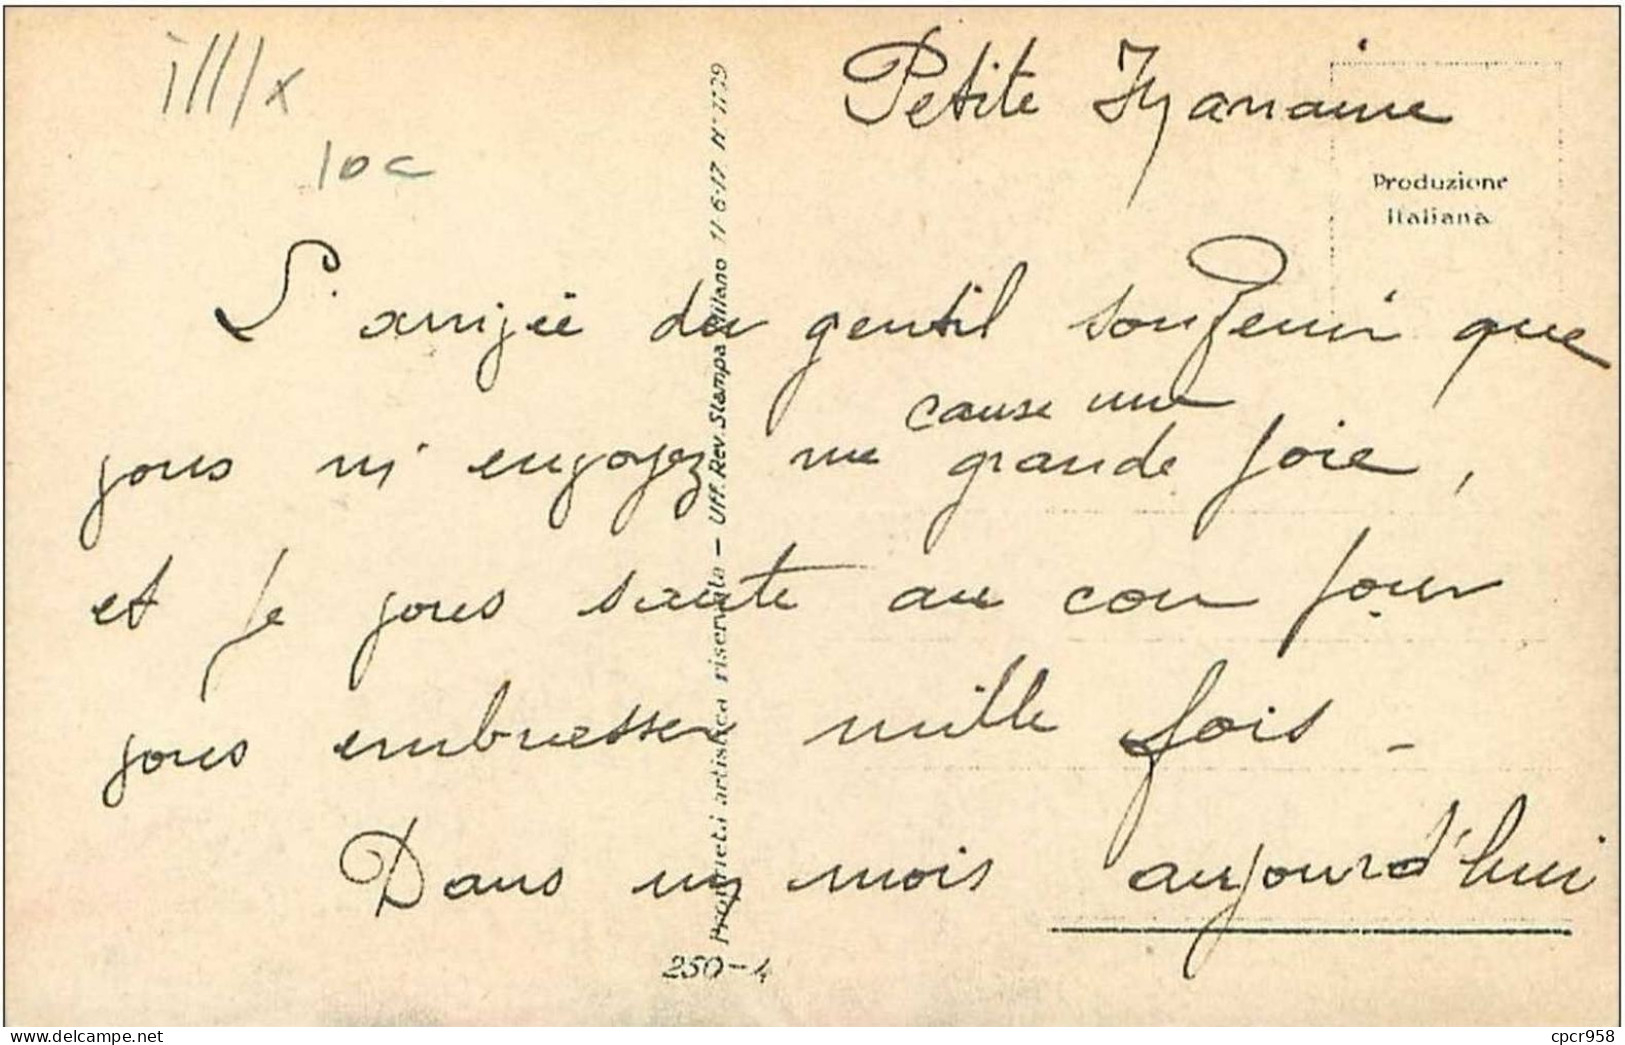 III/x
10c
Petite Maraine
Produzione
Italiana
L'arrivée du gentil souvenir que
cause une
vous m'envoyez me grande joie,
et je vous saute au cou pour
vous embrasser mille fois -
Dans un mois aujourd'hui
Proprietà artistica riservata - Uff. Rev. Stampa Milano 11-6-17 N° 1709
250-4
delcampe.net
cpcr958